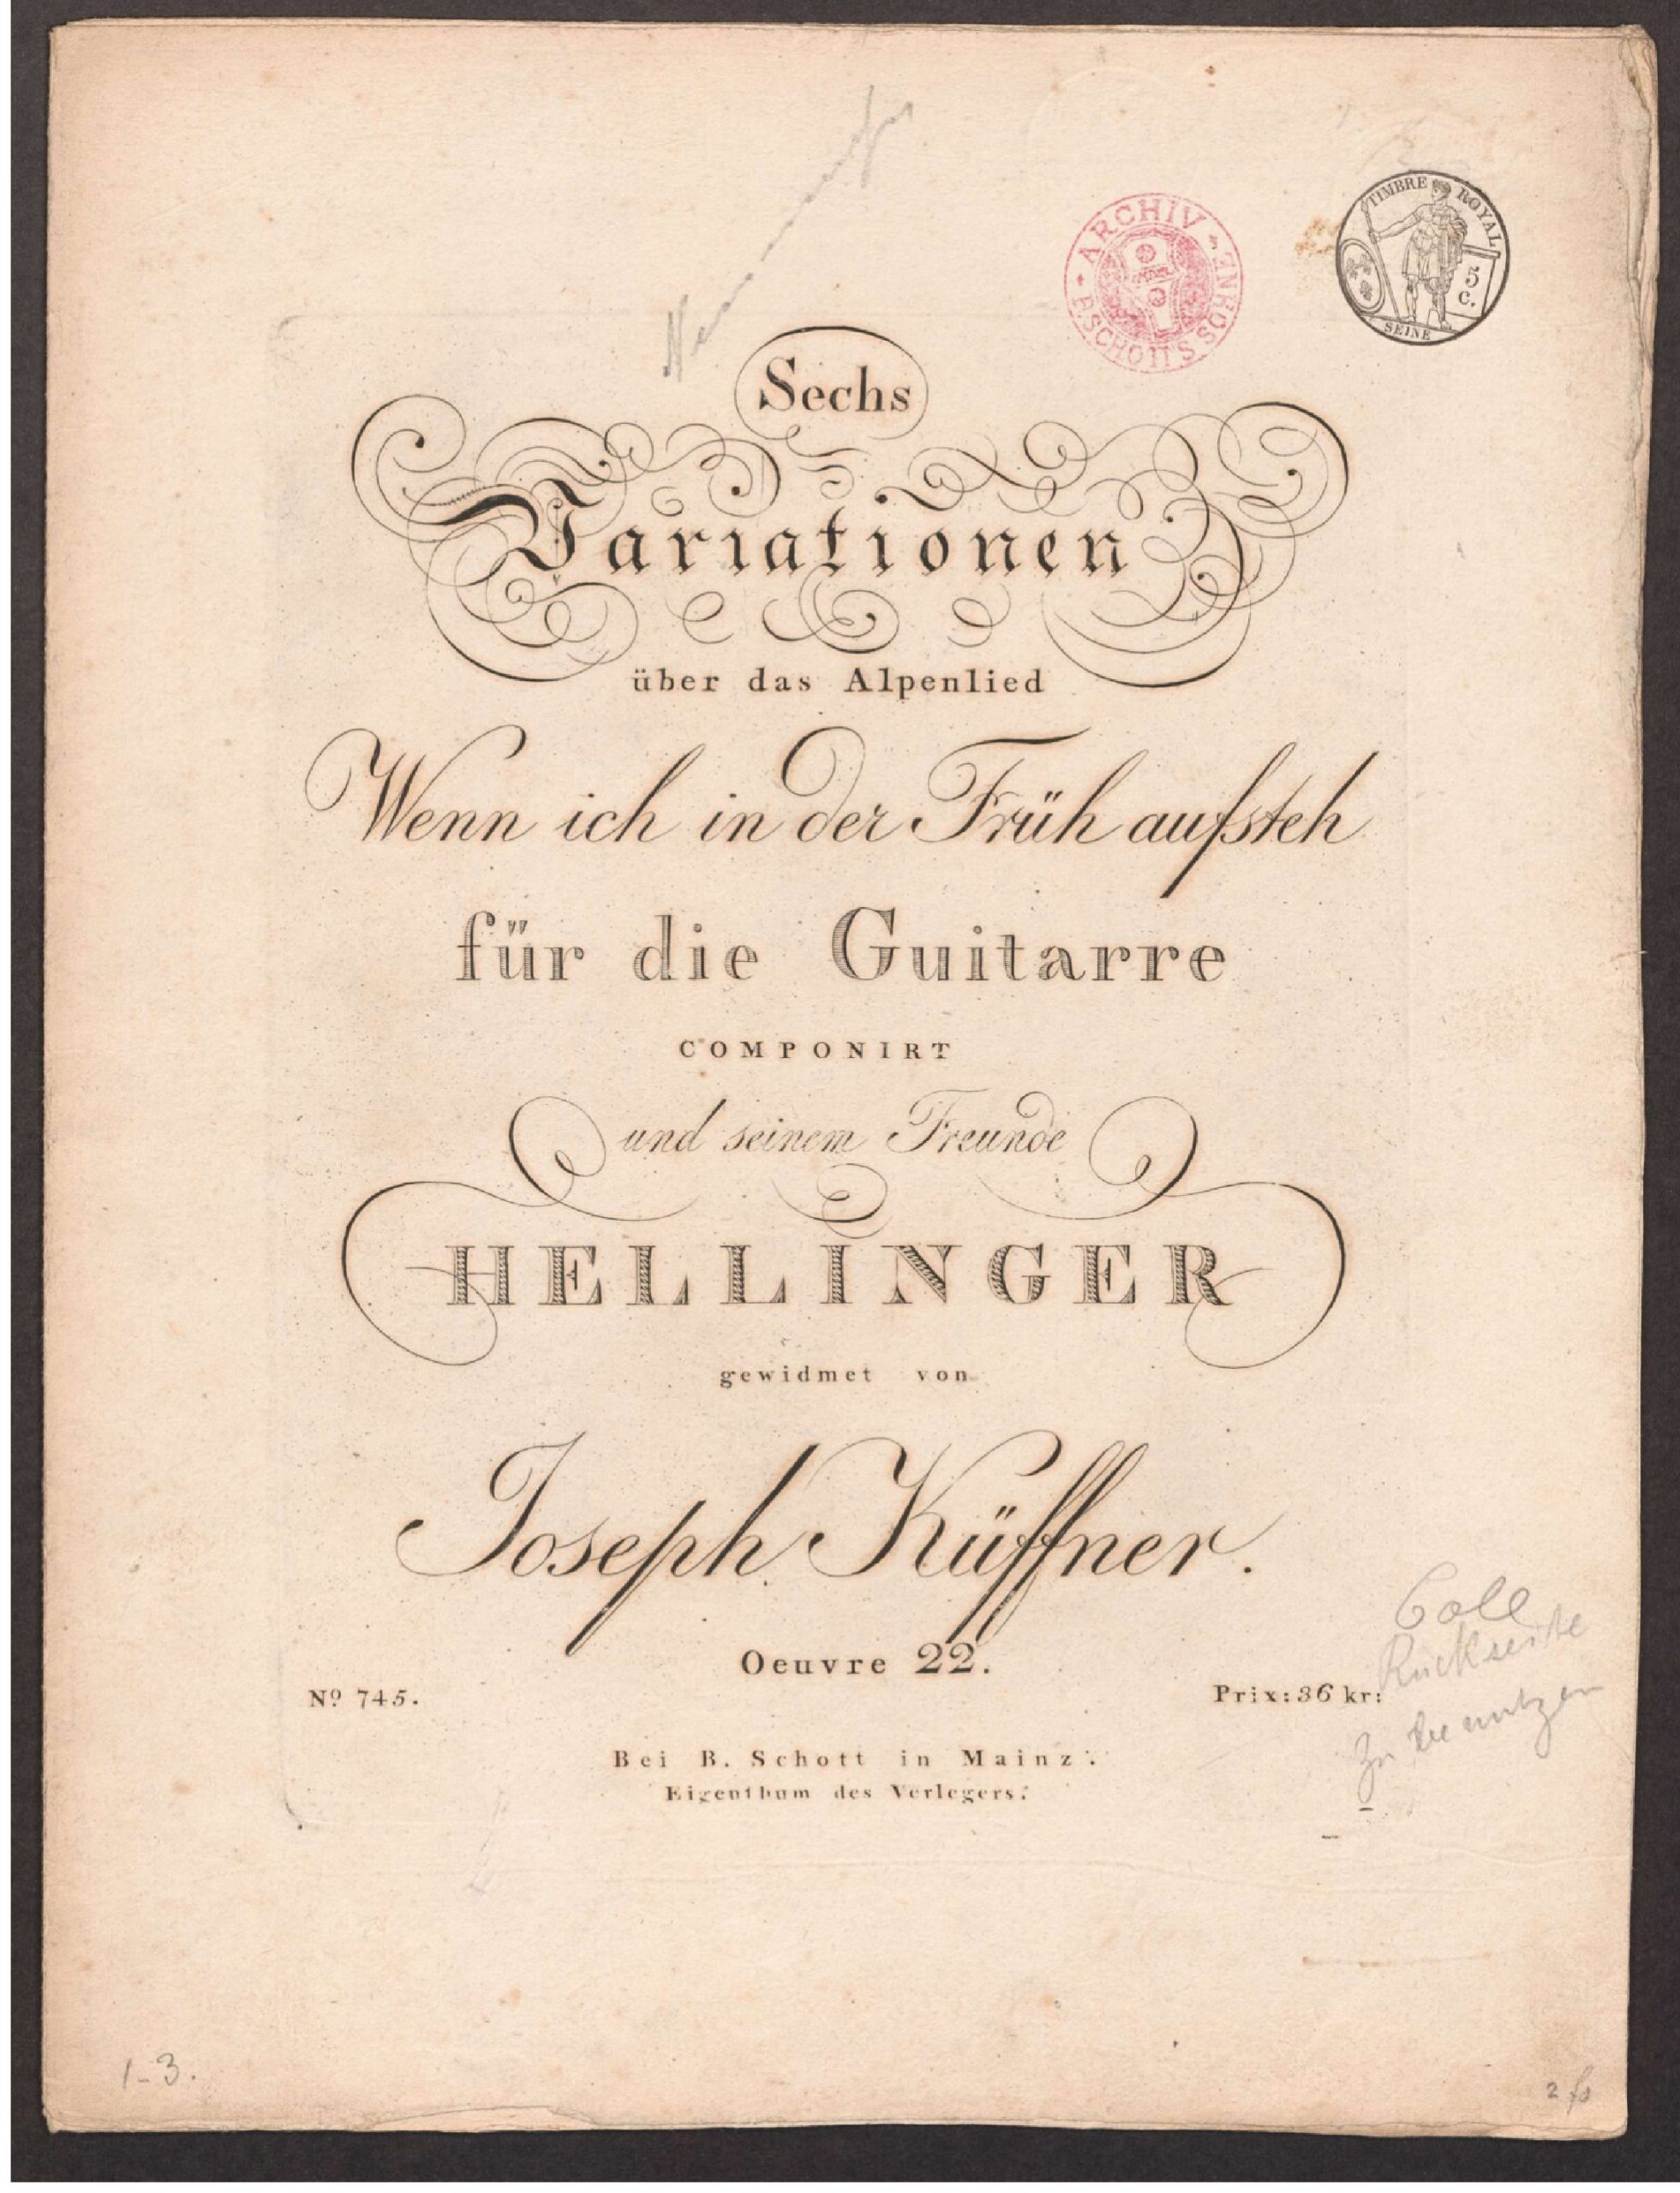 ARCHIV
B. SCHOTT'S SÖHNE
TIMBRE ROYAL
5
c.
SEINE
Sechs
Variationen
über das Alpenlied
Wenn ich in der Früh aufsteh
für die Guitarre
COMPONIRT
und seinem Freunde
HELLINGER
gewidmet von
Joseph Küffner.
Oeuvre 22.
Nº 745.
Prix: 36 kr:
Rückseite
zu benutzen
Bei B. Schott in Mainz.
Eigenthum des Verlegers.
1-3.